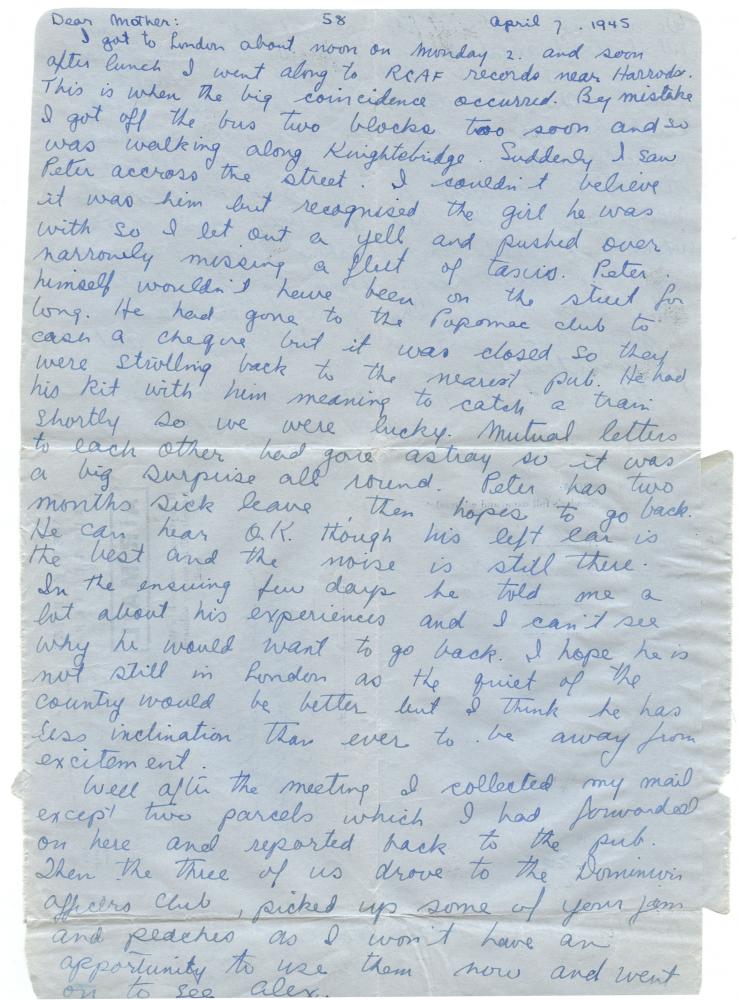 Dear Mother: 58 April 7. 1945
I got to London about noon on Monday 2. and soon
after lunch I went along to RCAF records near Harrods.
This is when the big coincidence occurred. By mistake
I got off the bus two blocks too soon and so
was walking along Knightsbridge. Suddenly I saw
Peter accross the street. I couldn't believe
it was him but recognised the girl he was
with so I let out a yell and pushed over
narrowly missing a fleet of taxis. Peter
himself wouldn't have been on the street for
long. He had gone to the Popomac club to
cash a cheque but it was closed so they
were strolling back to the nearest pub. He had
his kit with him meaning to catch a train
shortly so we were lucky. Mutual letters
to each other had gone astray so it was
a big surprise all round. Peter has two
months sick leave, then hopes to go back.
He can hear O.K. though his left ear is
the best and the noise is still there.
In the ensuing few days he told me a
lot about his experiences and I can't see
why he would want to go back. I hope he is
not still in London as the quiet of the
country would be better but I think he has
less inclination than ever to be away from
excitement.
Well after the meeting I collected my mail
except two parcels which I had forwarded
on here and reported back to the pub.
Then the three of us drove to the Dominion
officers Club, picked up some of your jam
and peaches as I won't have an
opportunity to use them now and went
on to see Alex.